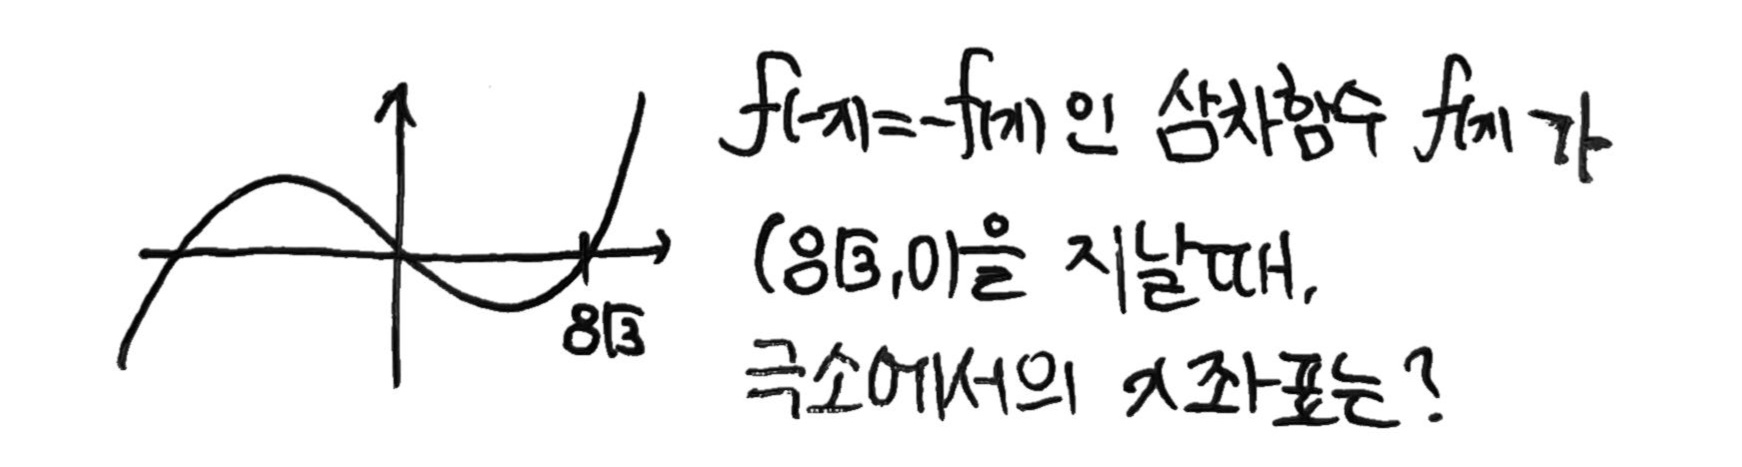 f(-x)=-f(x)인 삼차함수 f(x)가
(8√3,0)을 지날때,
극소에서의 x좌표는?
8√3